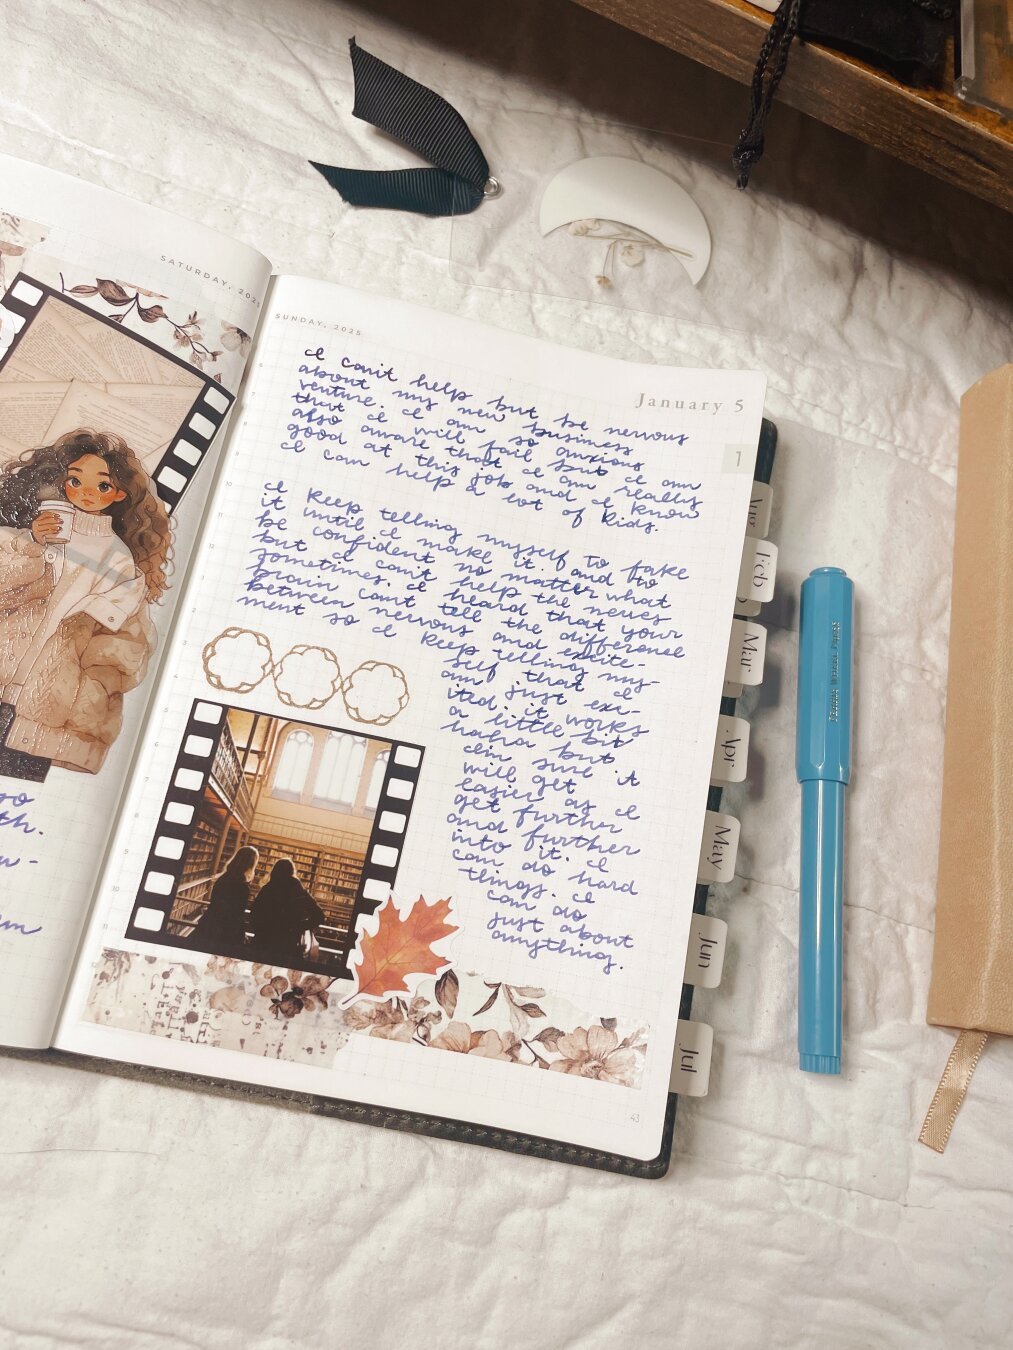 SATURDAY, 2025
SUNDAY, 2025
January 5
1
I can't help but be nervous
about my new business
venture. I am so anxious
that I will fail but I am
also aware that I am really
good at this job and I know
I can help a lot of kids.
I keep telling myself to fake
it until I make it and to
be confident no matter what
but I can't help the nerves
sometimes. I heard that your
brain can't tell the difference
between nervous and excite-
ment so I keep telling my-
self that I
am just exc-
ited. it works
a little bit
haha but
I'm sure it
will get
easier as I
get further
and further
into it. I
can do hard
things. I
can do
just about
anything.
43
Feb
Mar
Apr
May
Jun
Jul
th.